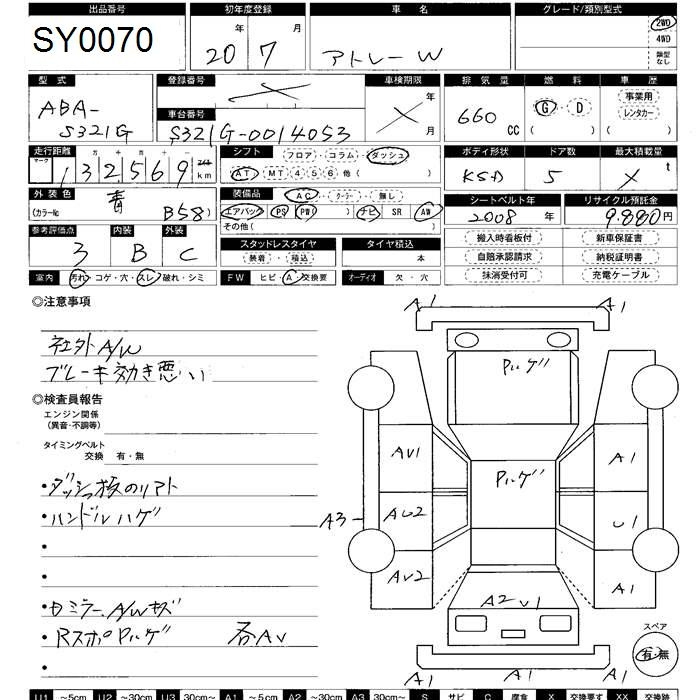 出品番号 初年度登録 車名 グレード/類別型式
SY0070 20年 7月 アトレーW 2WD
4WD
類型なし
型式 登録番号 車検期限 排気量 燃料 車歴
ABA- × 年 事業用
車台番号 × 660 CC G・D レンタカー
S321G S321G-0014053 月 ( ) ( )
走行距離 シフト フロア・コラム・ダッシュ ボディ形状 ドア数 最大積載量
マーク 十 万 千 マイル
132569 km AT MT 4 5 6 他( ) 5 × t
外装色 青 装備品 AC・クーラー・無し シートベルト年 リサイクル預託金
(カラーNo B58) エアバック PS PW( ) ナビ SR AW 2008年 9.880円
その他( )
参考評価点 内装 外装 搬入時看板付 新車保証書
3 B C スタッドレスタイヤ タイヤ積込 自賠承認請求 納税証明書
装着・積込 本 抹消受付可 充電ケーブル
室内 汚れ・コゲ・穴・スレ・破れ・シミ FW ヒビ・A・交換要 オーディオ 欠・穴
◎注意事項
社外A/W
ブレーキ効き悪い
◎検査員報告
エンジン関係
(異音・不調等)
タイミングベルト
交換 有・無
・ハンドルハゲ
・
・
・Rスポ Pハゲ 各AU
・
A1 A1
Pハゲ
AU1 A1
Pハゲ
A3 AU2 U1
AU2 A1
A2 U1
スペア
有・無
A1 A1 A1
U1 ~5cm U2 ~30cm U3 30cm~ A1 ~5cm A2 ~30cm A3 30cm~ S サビ C 腐食 X 交換要す XX 交換跡